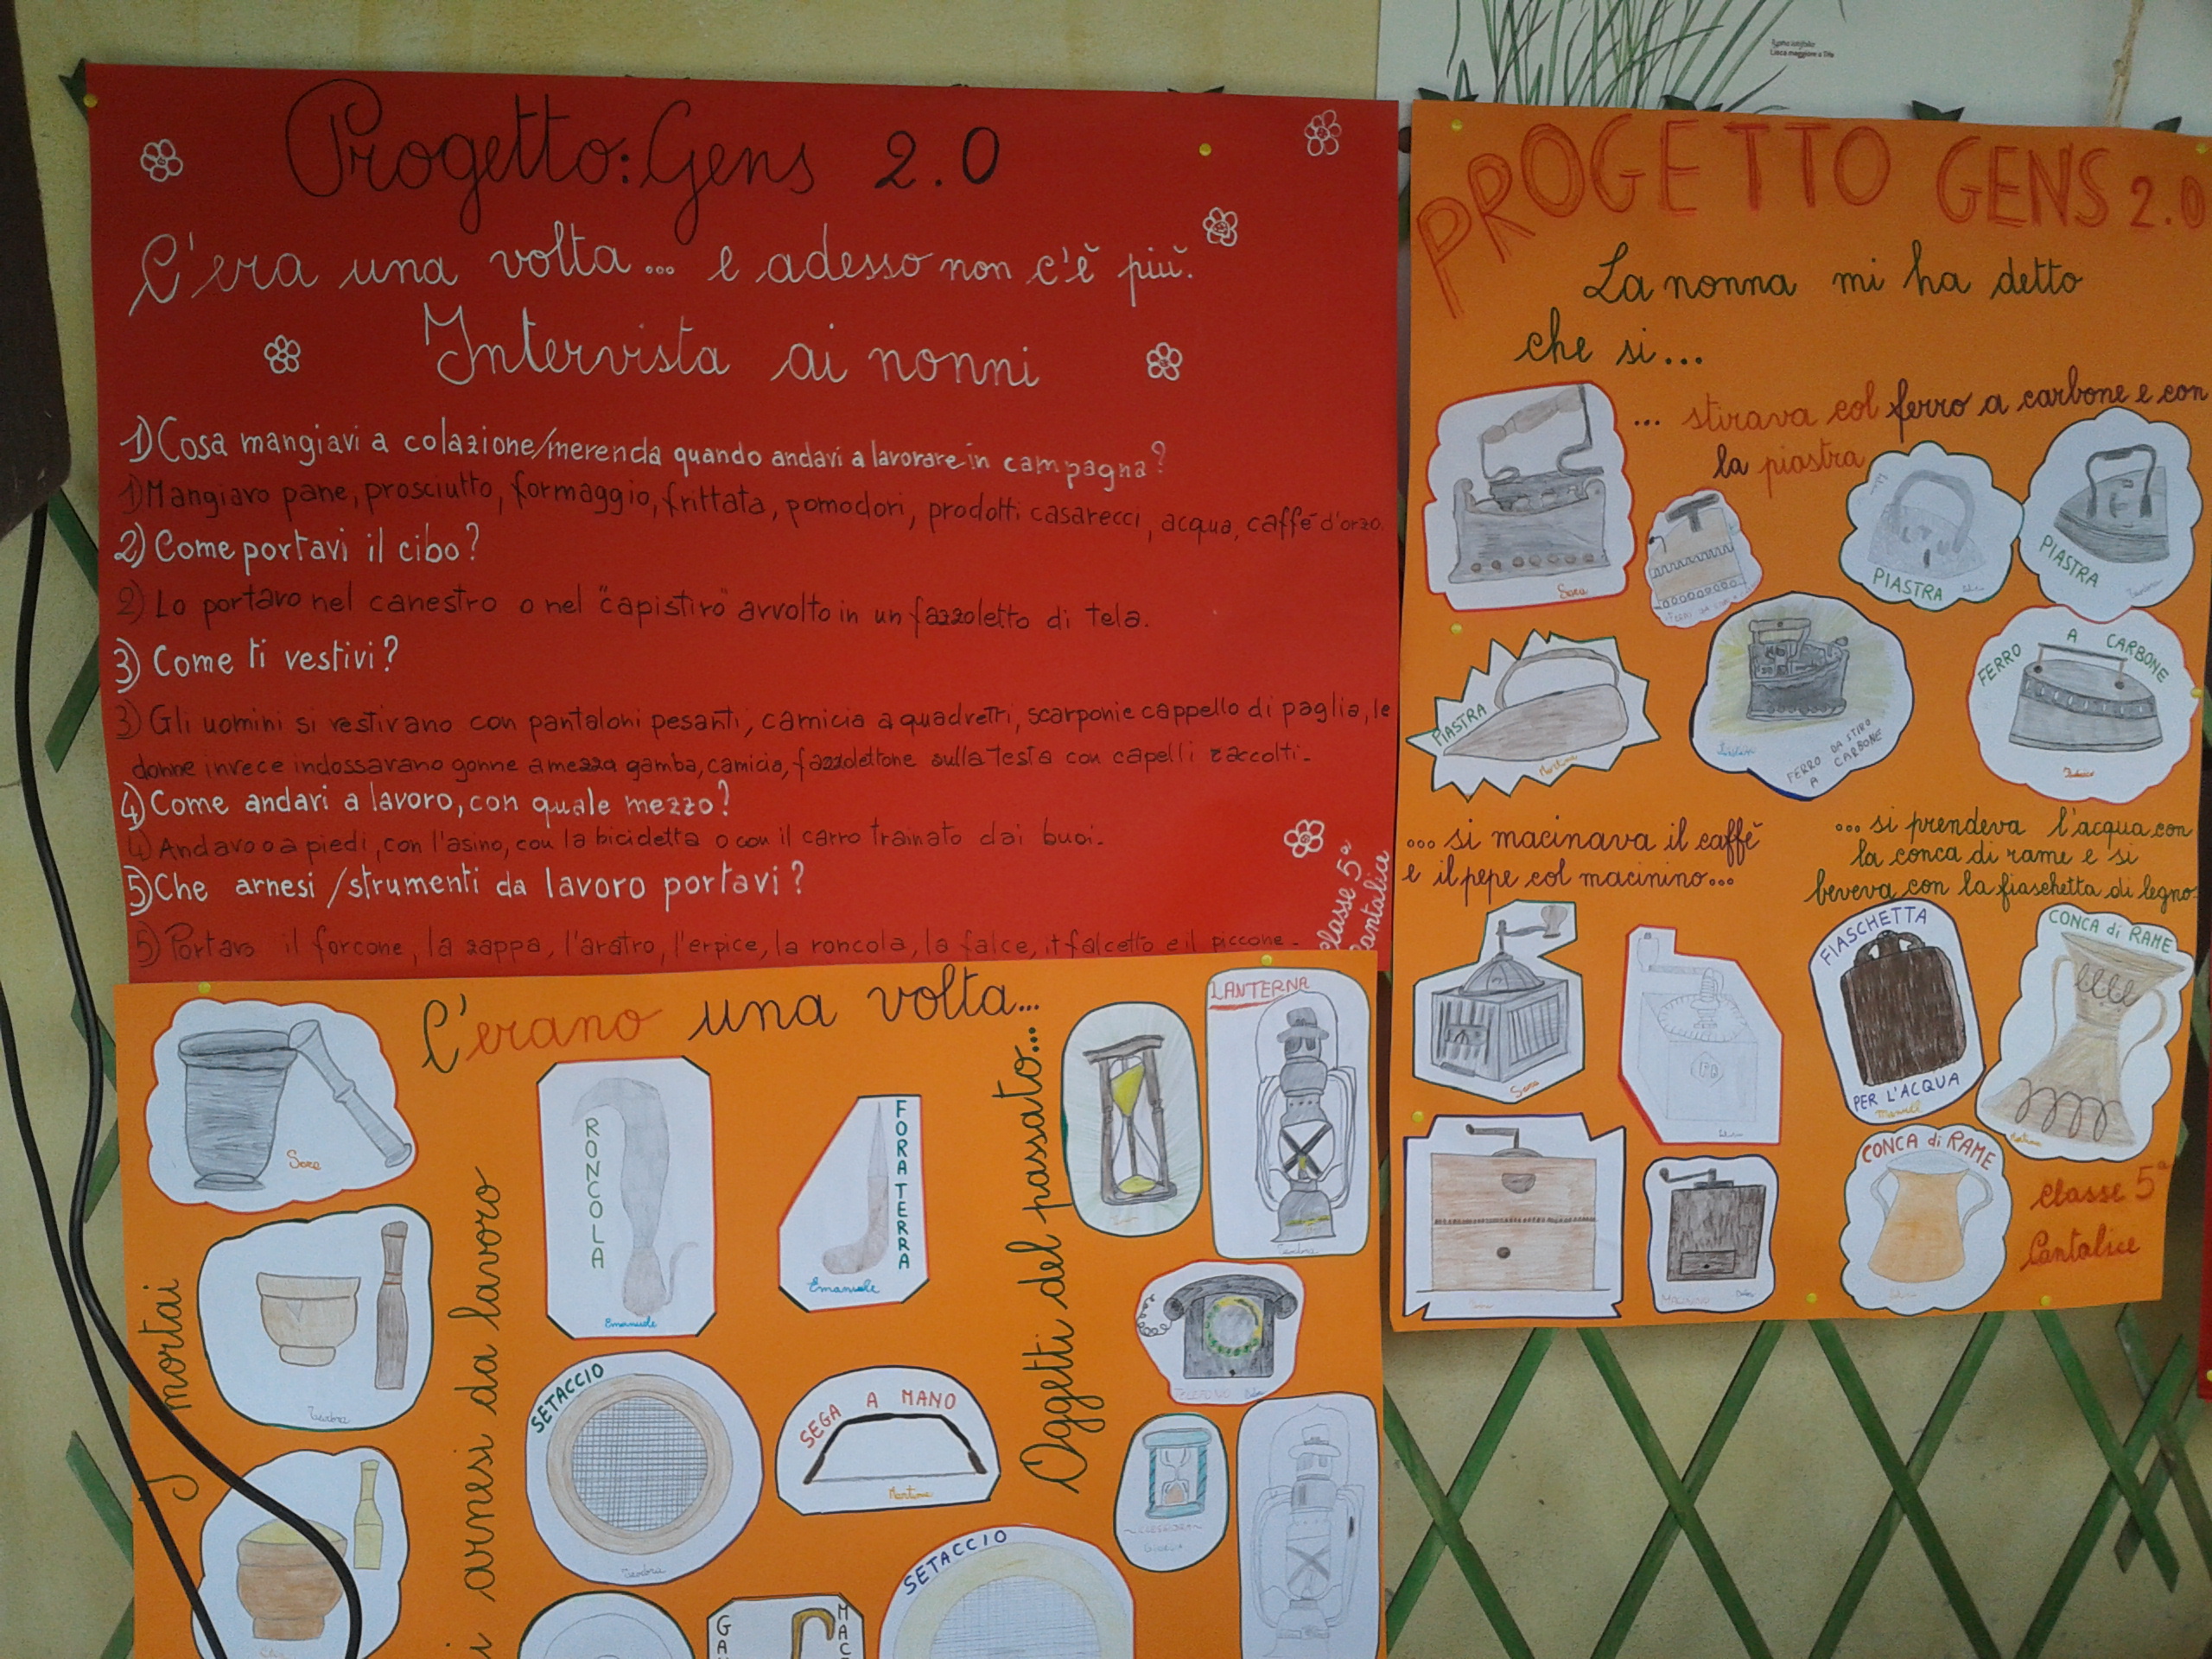 Progetto: Gens 2.0
C'era una volta... e adesso non c'è più.
Intervista ai nonni
1) Cosa mangiavi a colazione/merenda quando andavi a lavorare in campagna?
1) Mangiavo pane, prosciutto, formaggio, frittata, pomodori, prodotti casarecci, acqua, caffè d'orzo.
2) Come portavi il cibo?
2) Lo portavo nel canestro o nel "capistiro" avvolto in un fazzoletto di tela.
3) Come ti vestivi?
3) Gli uomini si vestivano con pantaloni pesanti, camicia a quadretti, scarponi e cappello di paglia, le
donne invece indossavano gonne a mezza gamba, camicia, fazzolettone sulla testa con capelli raccolti.
4) Come andavi a lavoro, con quale mezzo?
4) Andavo o a piedi, con l'asino, con la bicicletta o con il carro trainato dai buoi.
5) Che arnesi/strumenti da lavoro portavi?
5) Portavo il forcone, la zappa, l'aratro, l'erpice, la roncola, la falce, il falcetto e il piccone.
classe 5ª
Cantalice
C'erano una volta...
I mortai
Sara
i arnesi da lavoro
RONCOLA
Emanuele
FORA TERRA
Emanuele
SETACCIO
SEGA A MANO
Martina
SETACCIO
Oggetti del passato...
LANTERNA
TELEFONO
CLESSIDRA
PROGETTO GENS 2.0
La nonna mi ha detto
che si...
... stirava col ferro a carbone e con
la piastra
Sara
PIASTRA
PIASTRA
PIASTRA
Martina
FERRO DA STIRO
A CARBONE
FERRO A CARBONE
... si macinava il caffè
e il pepe col macinino...
... si prendeva l'acqua con
la conca di rame e si
beveva con la fiaschetta di legno
Sara
FIASCHETTA
PER L'ACQUA
Manuel
CONCA di RAME
Martina
CONCA di RAME
classe 5ª
Cantalice